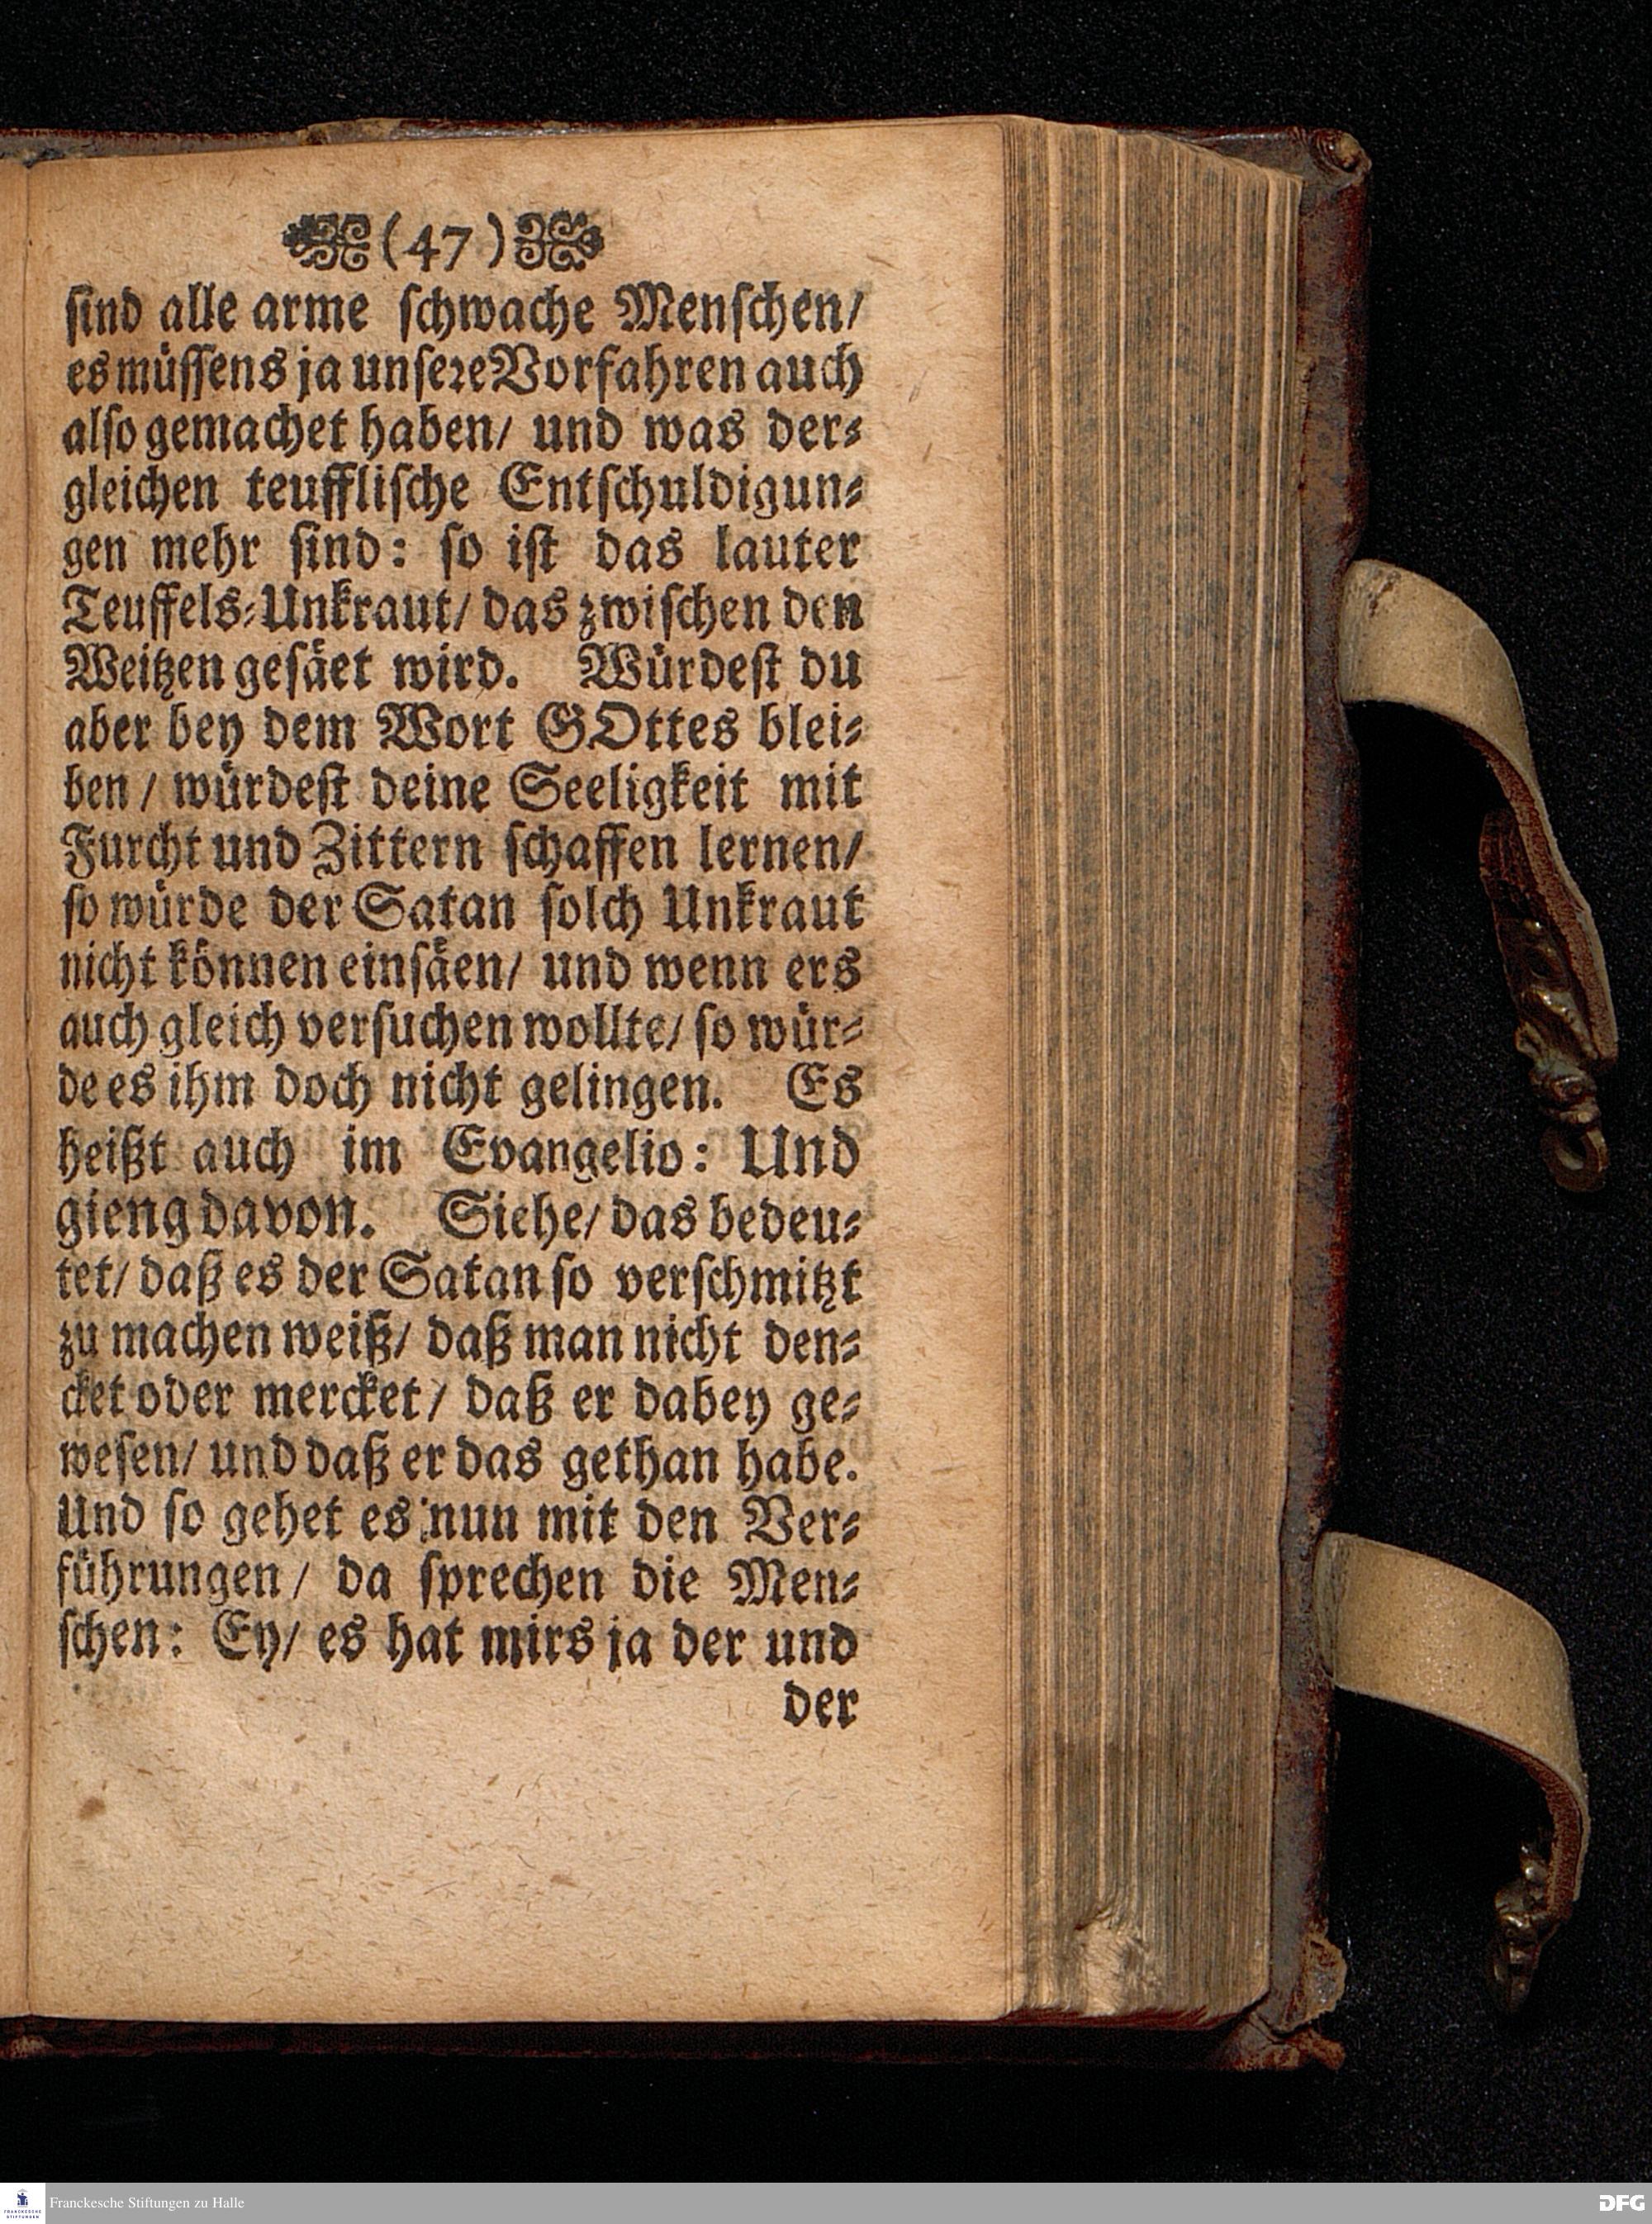 (47)
sind alle arme schwache Menschen/
es müssens ja unsere Vorfahren auch
also gemachet haben/ und was der-
gleichen teufflische Entschuldigun-
gen mehr sind: so ist das lauter
Teuffels-Unkraut/ das zwischen den
Weitzen gesäet wird. Würdest du
aber bey dem Wort GOttes blei-
ben / würdest deine Seeligkeit mit
Furcht und Zittern schaffen lernen/
so würde der Satan solch Unkraut
nicht können einsäen/ und wenn ers
auch gleich versuchen wollte/ so wür-
de es ihm doch nicht gelingen. Es
heißt auch im Evangelio: Und
gieng davon. Siehe/ das bedeu-
tet/ daß es der Satan so verschmitzt
zu machen weiß/ daß man nicht den-
cket oder mercket/ daß er dabey ge-
wesen/ und daß er das gethan habe.
Und so gehet es nun mit den Ver-
führungen / da sprechen die Men-
schen: Ey/ es hat mirs ja der und
der
Franckesche Stiftungen zu Halle
FRANCKESCHE
STIFTUNGEN
DFG